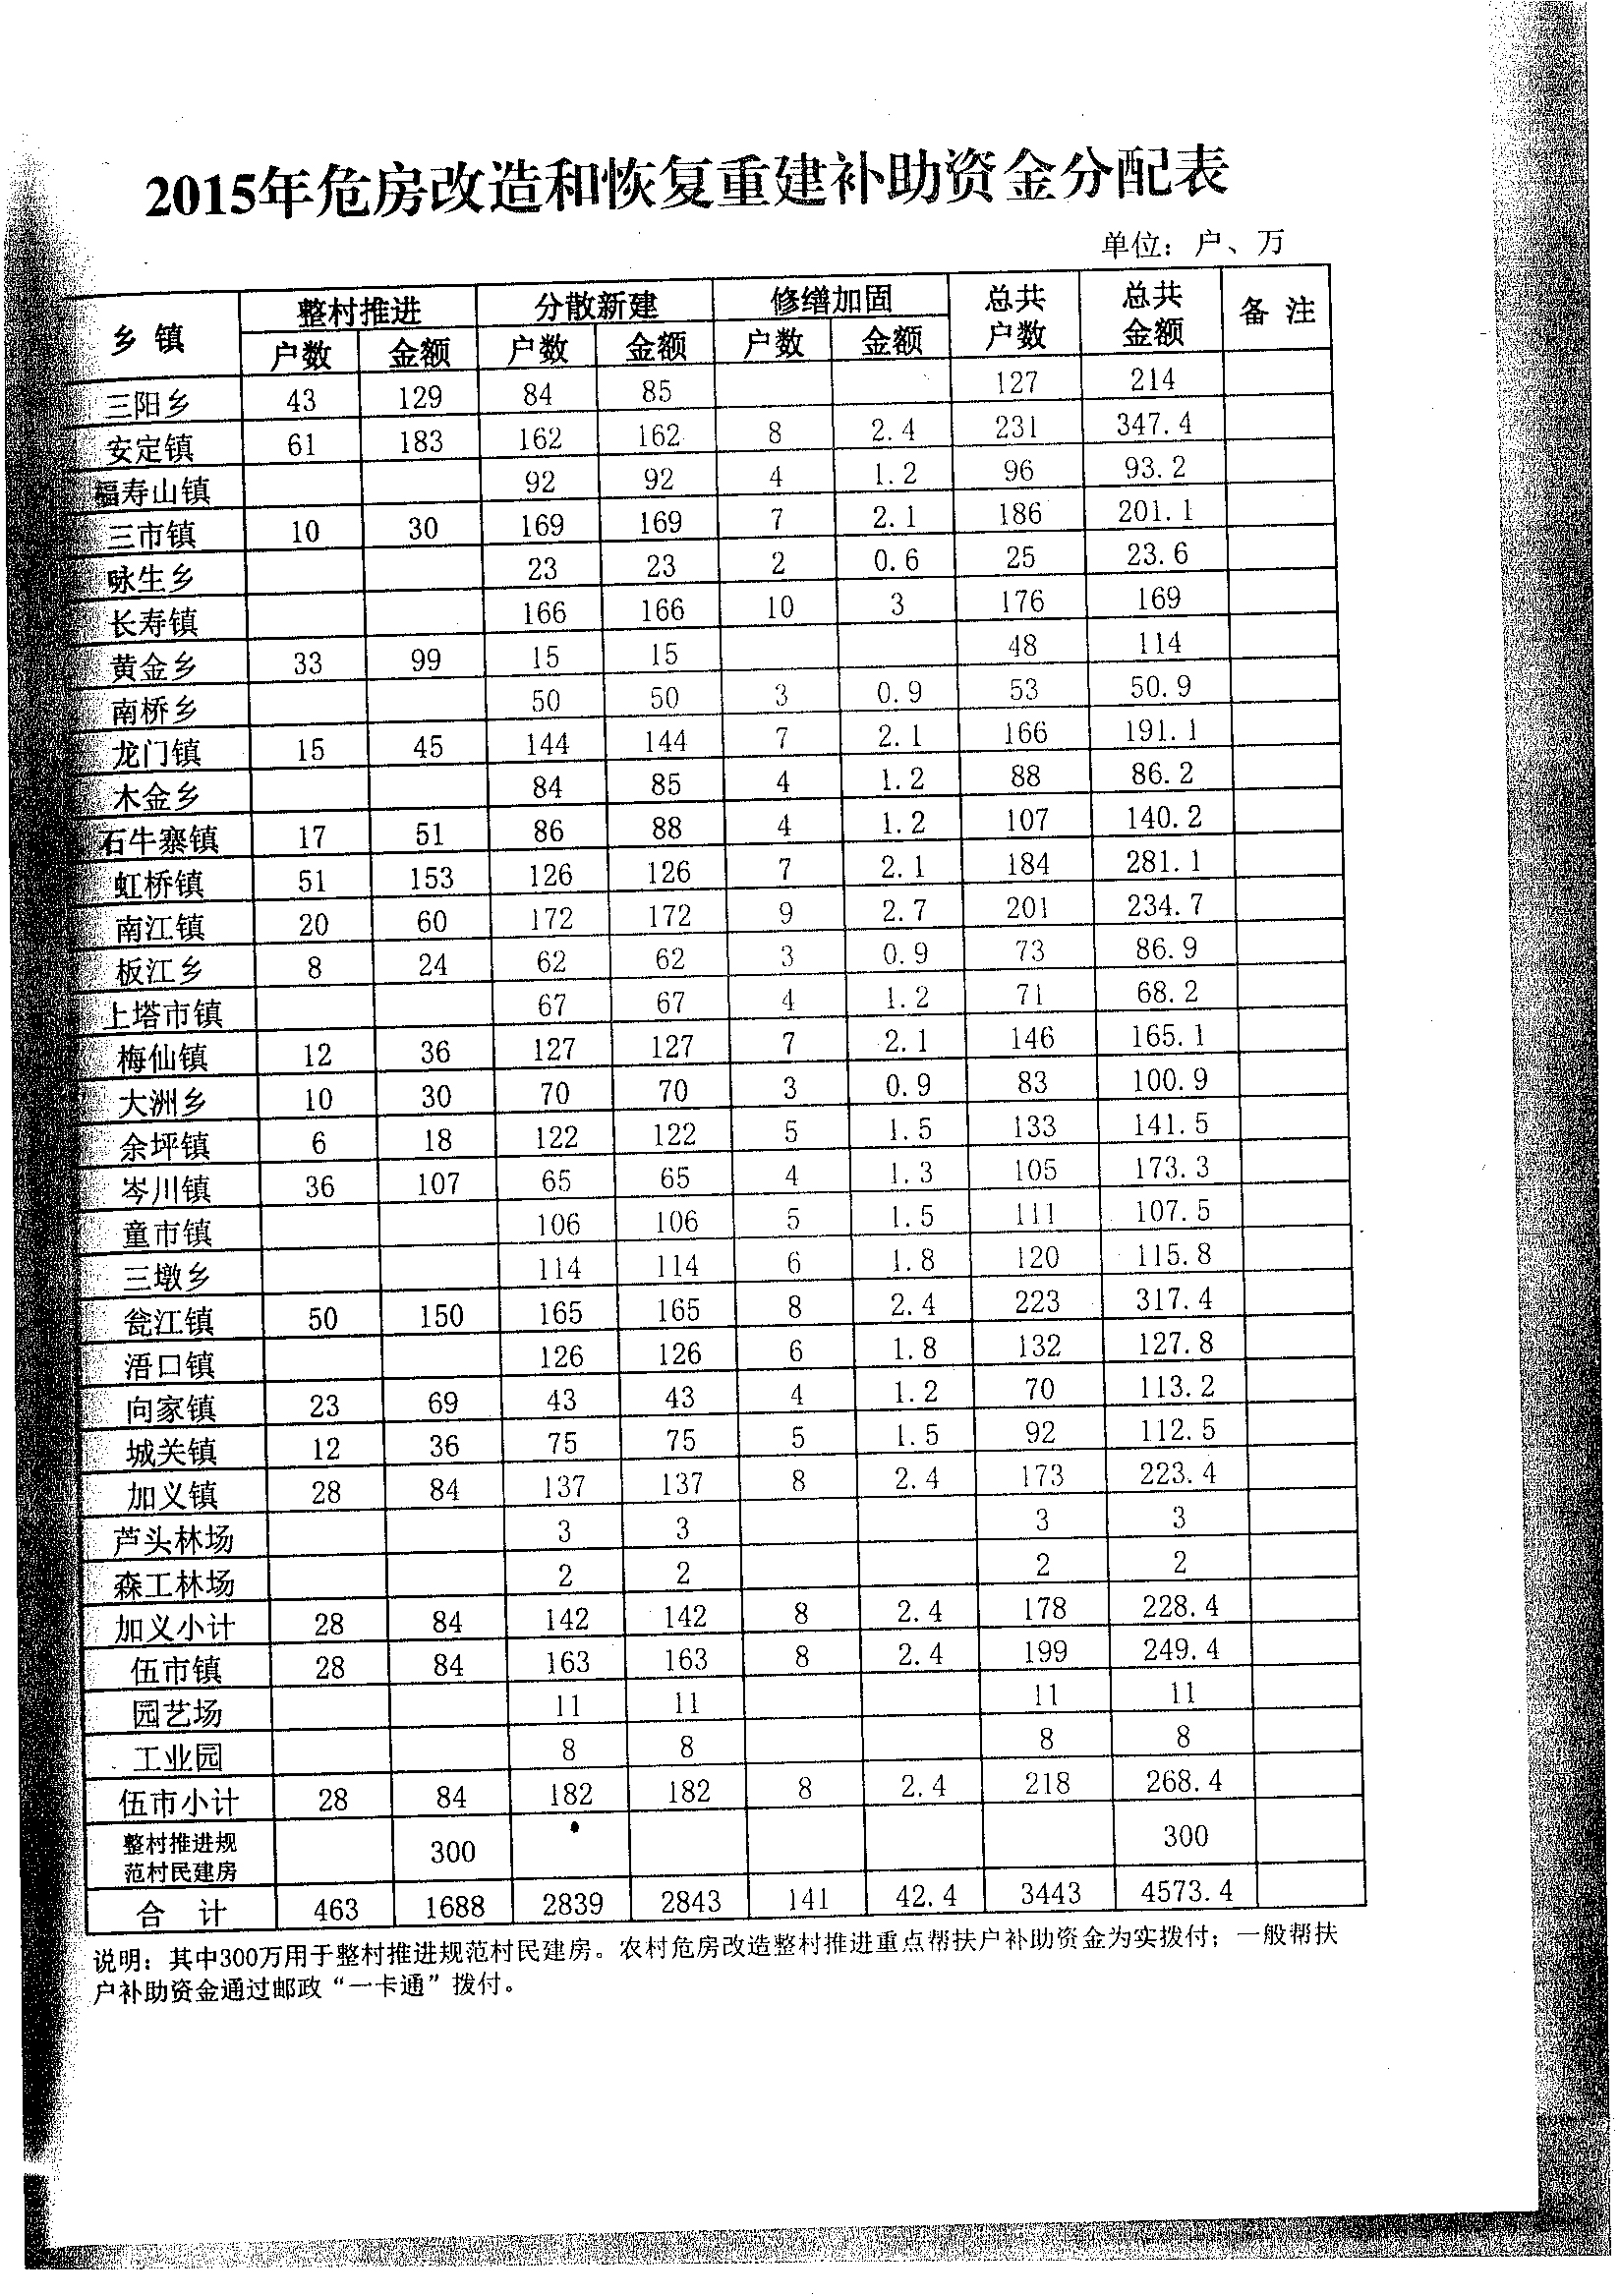 2015年危房改造和恢复重建补助资金分配表
单位：户、万
乡 镇 整村推进 分散新建 修缮加固 总共户数 总共金额 备 注
户数 金额 户数 金额 户数 金额
三阳乡 43 129 84 85 127 214
安定镇 61 183 162 162 8 2.4 231 347.4
福寿山镇 92 92 4 1.2 96 93.2
三市镇 10 30 169 169 7 2.1 186 201.1
咏生乡 23 23 2 0.6 25 23.6
长寿镇 166 166 10 3 176 169
黄金乡 33 99 15 15 48 114
南桥乡 50 50 3 0.9 53 50.9
龙门镇 15 45 144 144 7 2.1 166 191.1
木金乡 84 85 4 1.2 88 86.2
石牛寨镇 17 51 86 88 4 1.2 107 140.2
虹桥镇 51 153 126 126 7 2.1 184 281.1
南江镇 20 60 172 172 9 2.7 201 234.7
板江乡 8 24 62 62 3 0.9 73 86.9
上塔市镇 67 67 4 1.2 71 68.2
梅仙镇 12 36 127 127 7 2.1 146 165.1
大洲乡 10 30 70 70 3 0.9 83 100.9
余坪镇 6 18 122 122 5 1.5 133 141.5
岑川镇 36 107 65 65 4 1.3 105 173.3
童市镇 106 106 5 1.5 111 107.5
三墩乡 114 114 6 1.8 120 115.8
瓮江镇 50 150 165 165 8 2.4 223 317.4
浯口镇 126 126 6 1.8 132 127.8
向家镇 23 69 43 43 4 1.2 70 113.2
城关镇 12 36 75 75 5 1.5 92 112.5
加义镇 28 84 137 137 8 2.4 173 223.4
芦头林场 3 3 3 3
森工林场 2 2 2 2
加义小计 28 84 142 142 8 2.4 178 228.4
伍市镇 28 84 163 163 8 2.4 199 249.4
园艺场 11 11 11 11
工业园 8 8 8 8
伍市小计 28 84 182 182 8 2.4 218 268.4
整村推进规范村民建房 300 300
合 计 463 1688 2839 2843 141 42.4 3443 4573.4
说明：其中300万用于整村推进规范村民建房。农村危房改造整村推进重点帮扶户补助资金为实拨付；一般帮扶
户补助资金通过邮政“一卡通”拨付。